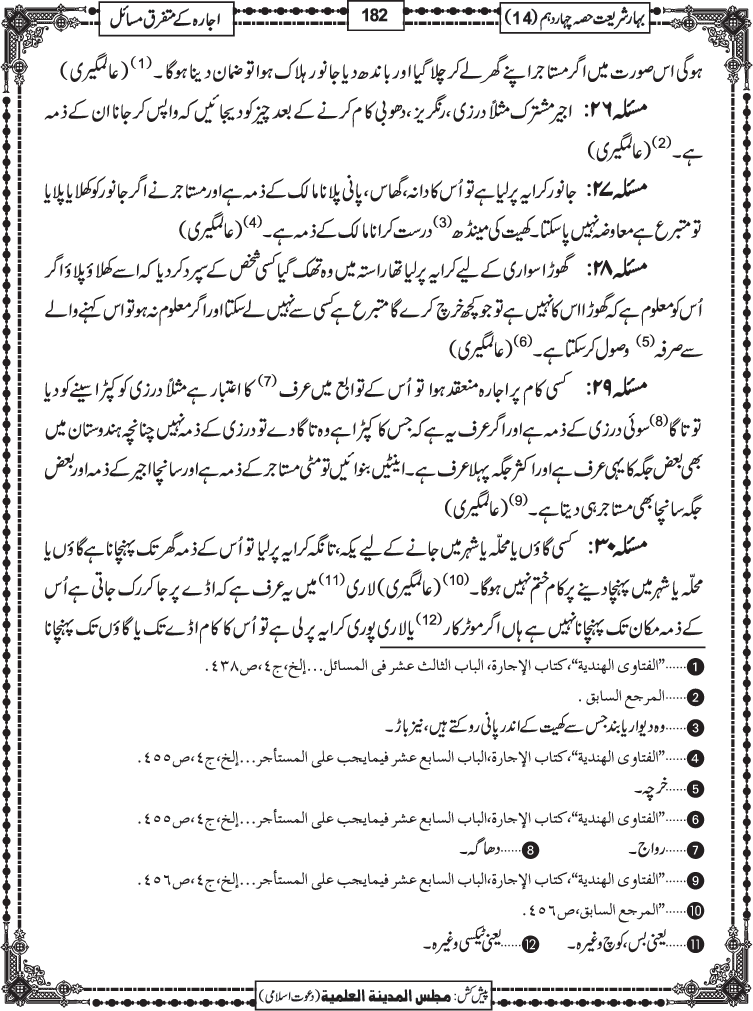 بہارِ شریعت حصہ چہاردہم (14)
182
اجارہ کے متفرق مسائل
ہوگی اس صورت میں اگر مستاجر اپنے گھر لے کر چلا گیا اور باندھ دیا جانور ہلاک ہوا تو ضمان دینا ہوگا۔(1) (عالمگیری)
مسئلہ ۲۶: اجیر مشترک مثلاً درزی، رنگریز، دھوبی کام کرنے کے بعد چیز کو دیجائیں کہ واپس کر جانا ان کے ذمہ
ہے۔(2) (عالمگیری)
مسئلہ ۲۷: جانور کرایہ پر لیا ہے تو اُس کا دانہ، گھاس، پانی پلانا مالک کے ذمہ ہے اور مستاجر نے اگر جانور کو کھلایا پلایا
تو متبرع ہے معاوضہ نہیں پاسکتا۔ کھیت کی مینڈھ(3) درست کرانا مالک کے ذمہ ہے۔(4) (عالمگیری)
مسئلہ ۲۸: گھوڑا سواری کے لیے کرایہ پر لیا تھا راستہ میں وہ تھک گیا کسی شخص کے سپرد کر دیا کہ اسے کھلاؤ پلاؤ اگر
اُس کو معلوم ہے کہ گھوڑا اس کا نہیں ہے تو جو کچھ خرچ کرے گا متبرع ہے کسی سے نہیں لے سکتا اور اگر معلوم نہ ہو تو اس کہنے والے
سے صرفہ(5) وصول کر سکتا ہے۔(6) (عالمگیری)
مسئلہ ۲۹: کسی کام پر اجارہ منعقد ہوا تو اُس کے توابع میں عرف(7) کا اعتبار ہے مثلاً درزی کو کپڑا سینے کو دیا
تو تاگا(8) سوئی درزی کے ذمہ ہے اور اگر عرف یہ ہے کہ جس کا کپڑا ہے وہ تاگا دے تو درزی کے ذمہ نہیں چنانچہ ہندوستان میں
بھی بعض جگہ کا یہی عرف ہے اور اکثر جگہ پہلا عرف ہے۔ اینٹیں بنوائیں تو مٹی مستاجر کے ذمہ ہے اور سانچا اجیر کے ذمہ اور بعض
جگہ سانچا بھی مستاجر ہی دیتا ہے۔(9) (عالمگیری)
مسئلہ ۳۰: کسی گاؤں یا محلّہ یا شہر میں جانے کے لیے یکہ، تانگہ کرایہ پر لیا تو اُس کے ذمہ گھر تک پہنچانا ہے گاؤں یا
محلّہ یا شہر میں پہنچا دینے پر کام ختم نہیں ہوگا۔(10) (عالمگیری) لاری(11) میں یہ عرف ہے کہ اڈے پر جاکر رک جاتی ہے اُس
کے ذمہ مکان تک پہنچانا نہیں ہے ہاں اگر موٹر کار(12) یا لاری پوری کرایہ پر لی ہے تو اُس کا کام اڈے تک یا گاؤں تک پہنچانا
1......”الفتاوی الهندية“، کتاب الإجارة، الباب الثالث عشر فی المسائل...إلخ، ج٤، ص٤٣٨.
2......المرجع السابق.
3......وہ دیوار یا بند جس سے کھیت کے اندر پانی روکتے ہیں، نیز باڑ۔
4......”الفتاوی الهندية“، کتاب الإجارة، الباب السابع عشر فیما یجب علی المستأجر...إلخ، ج٤، ص٤٥٥.
5......خرچہ۔
6......”الفتاوی الهندية“، کتاب الإجارة، الباب السابع عشر فیما یجب علی المستأجر...إلخ، ج٤، ص٤٥٥.
7......رواج۔ 8......دھاگہ۔
9......”الفتاوی الهندية“، کتاب الإجارة، الباب السابع عشر فیما یجب علی المستأجر...إلخ، ج٤، ص٤٥٦.
10......”المرجع السابق، ص٤٥٦.
11......یعنی بس، کوچ وغیرہ۔ 12......یعنی ٹیکسی وغیرہ۔
پیش کش: مجلس المدینة العلمیة (دعوت اسلامی)